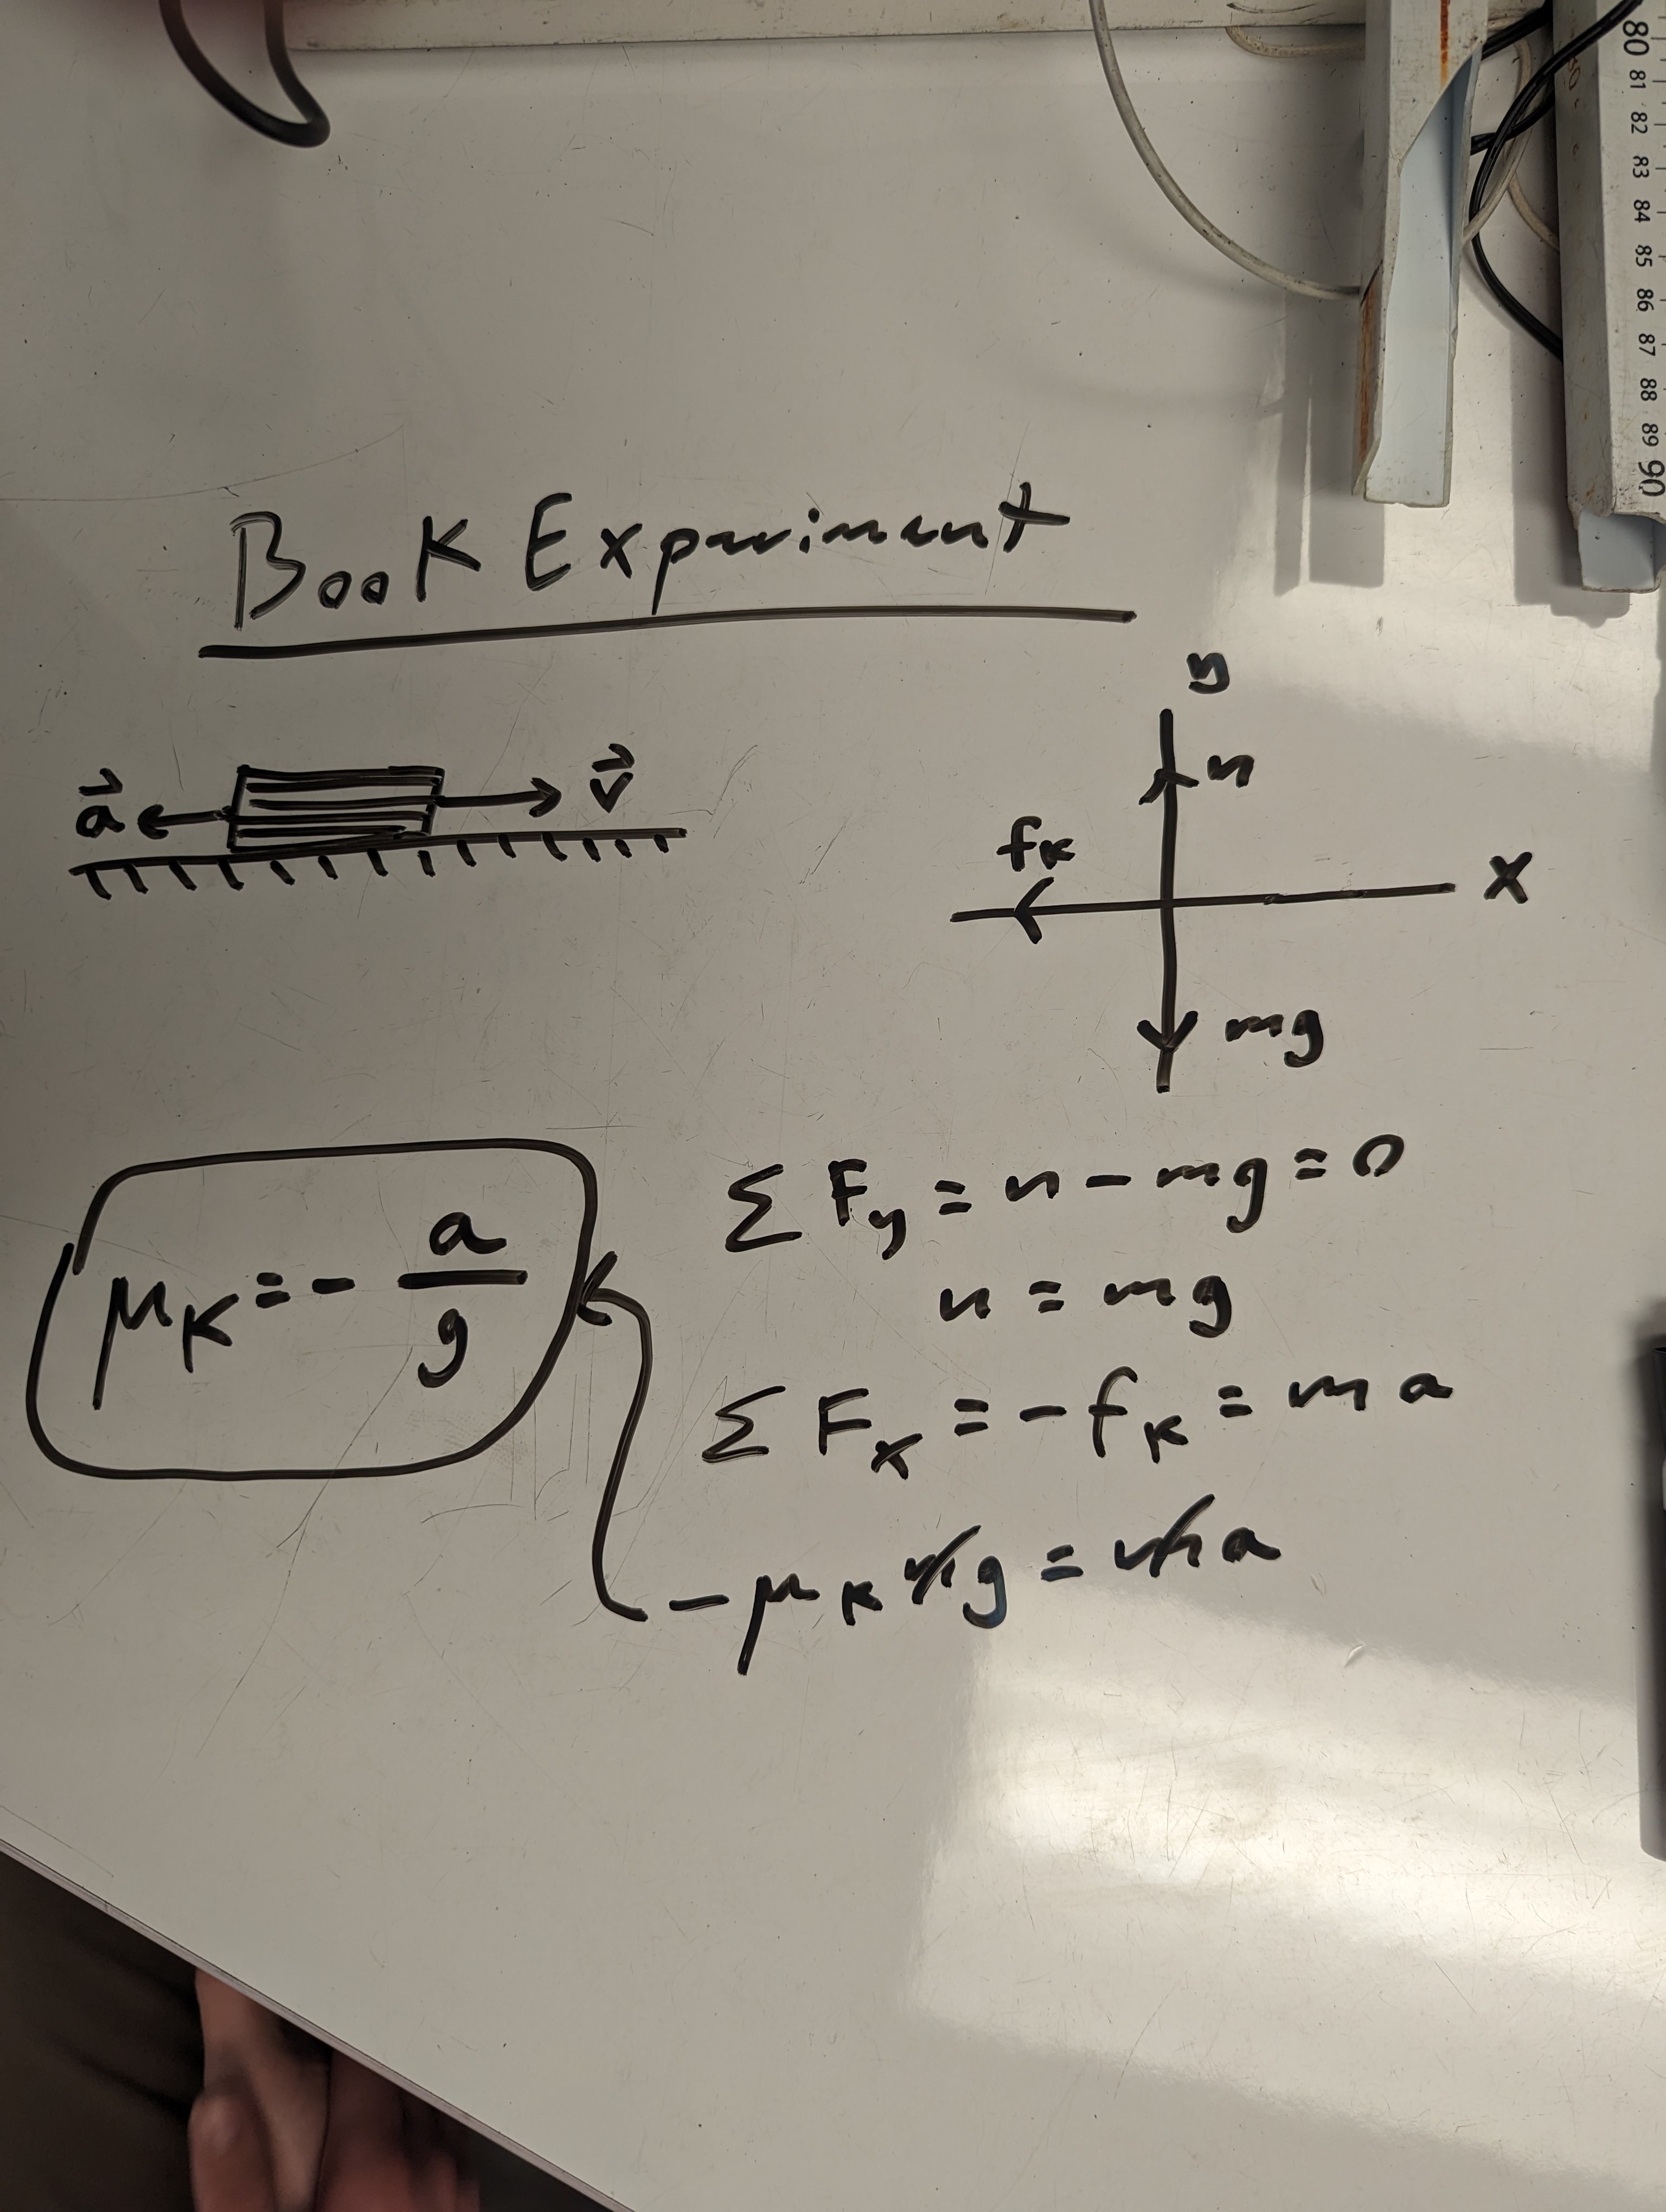 80
81
82
83
84
85
86
87
88
89
90
Book Experiment
y
n
a⃗ v⃗
f_k
x
mg
ΣF_y = n - mg = 0
μ_K = - a/g
n = mg
ΣF_x = -f_k = ma
-μ_k mg = ma